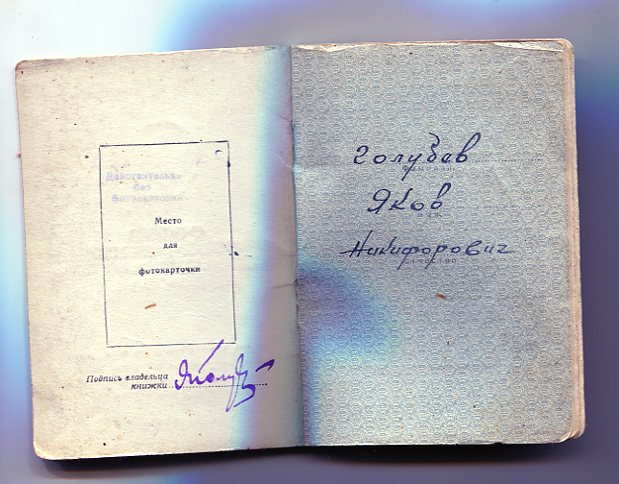 Действительно
без
фотокарточки
Место
для
фотокарточки
Подпись владельца
книжки
Голубав
фамилия
Яков
имя
Никифорович
отчество